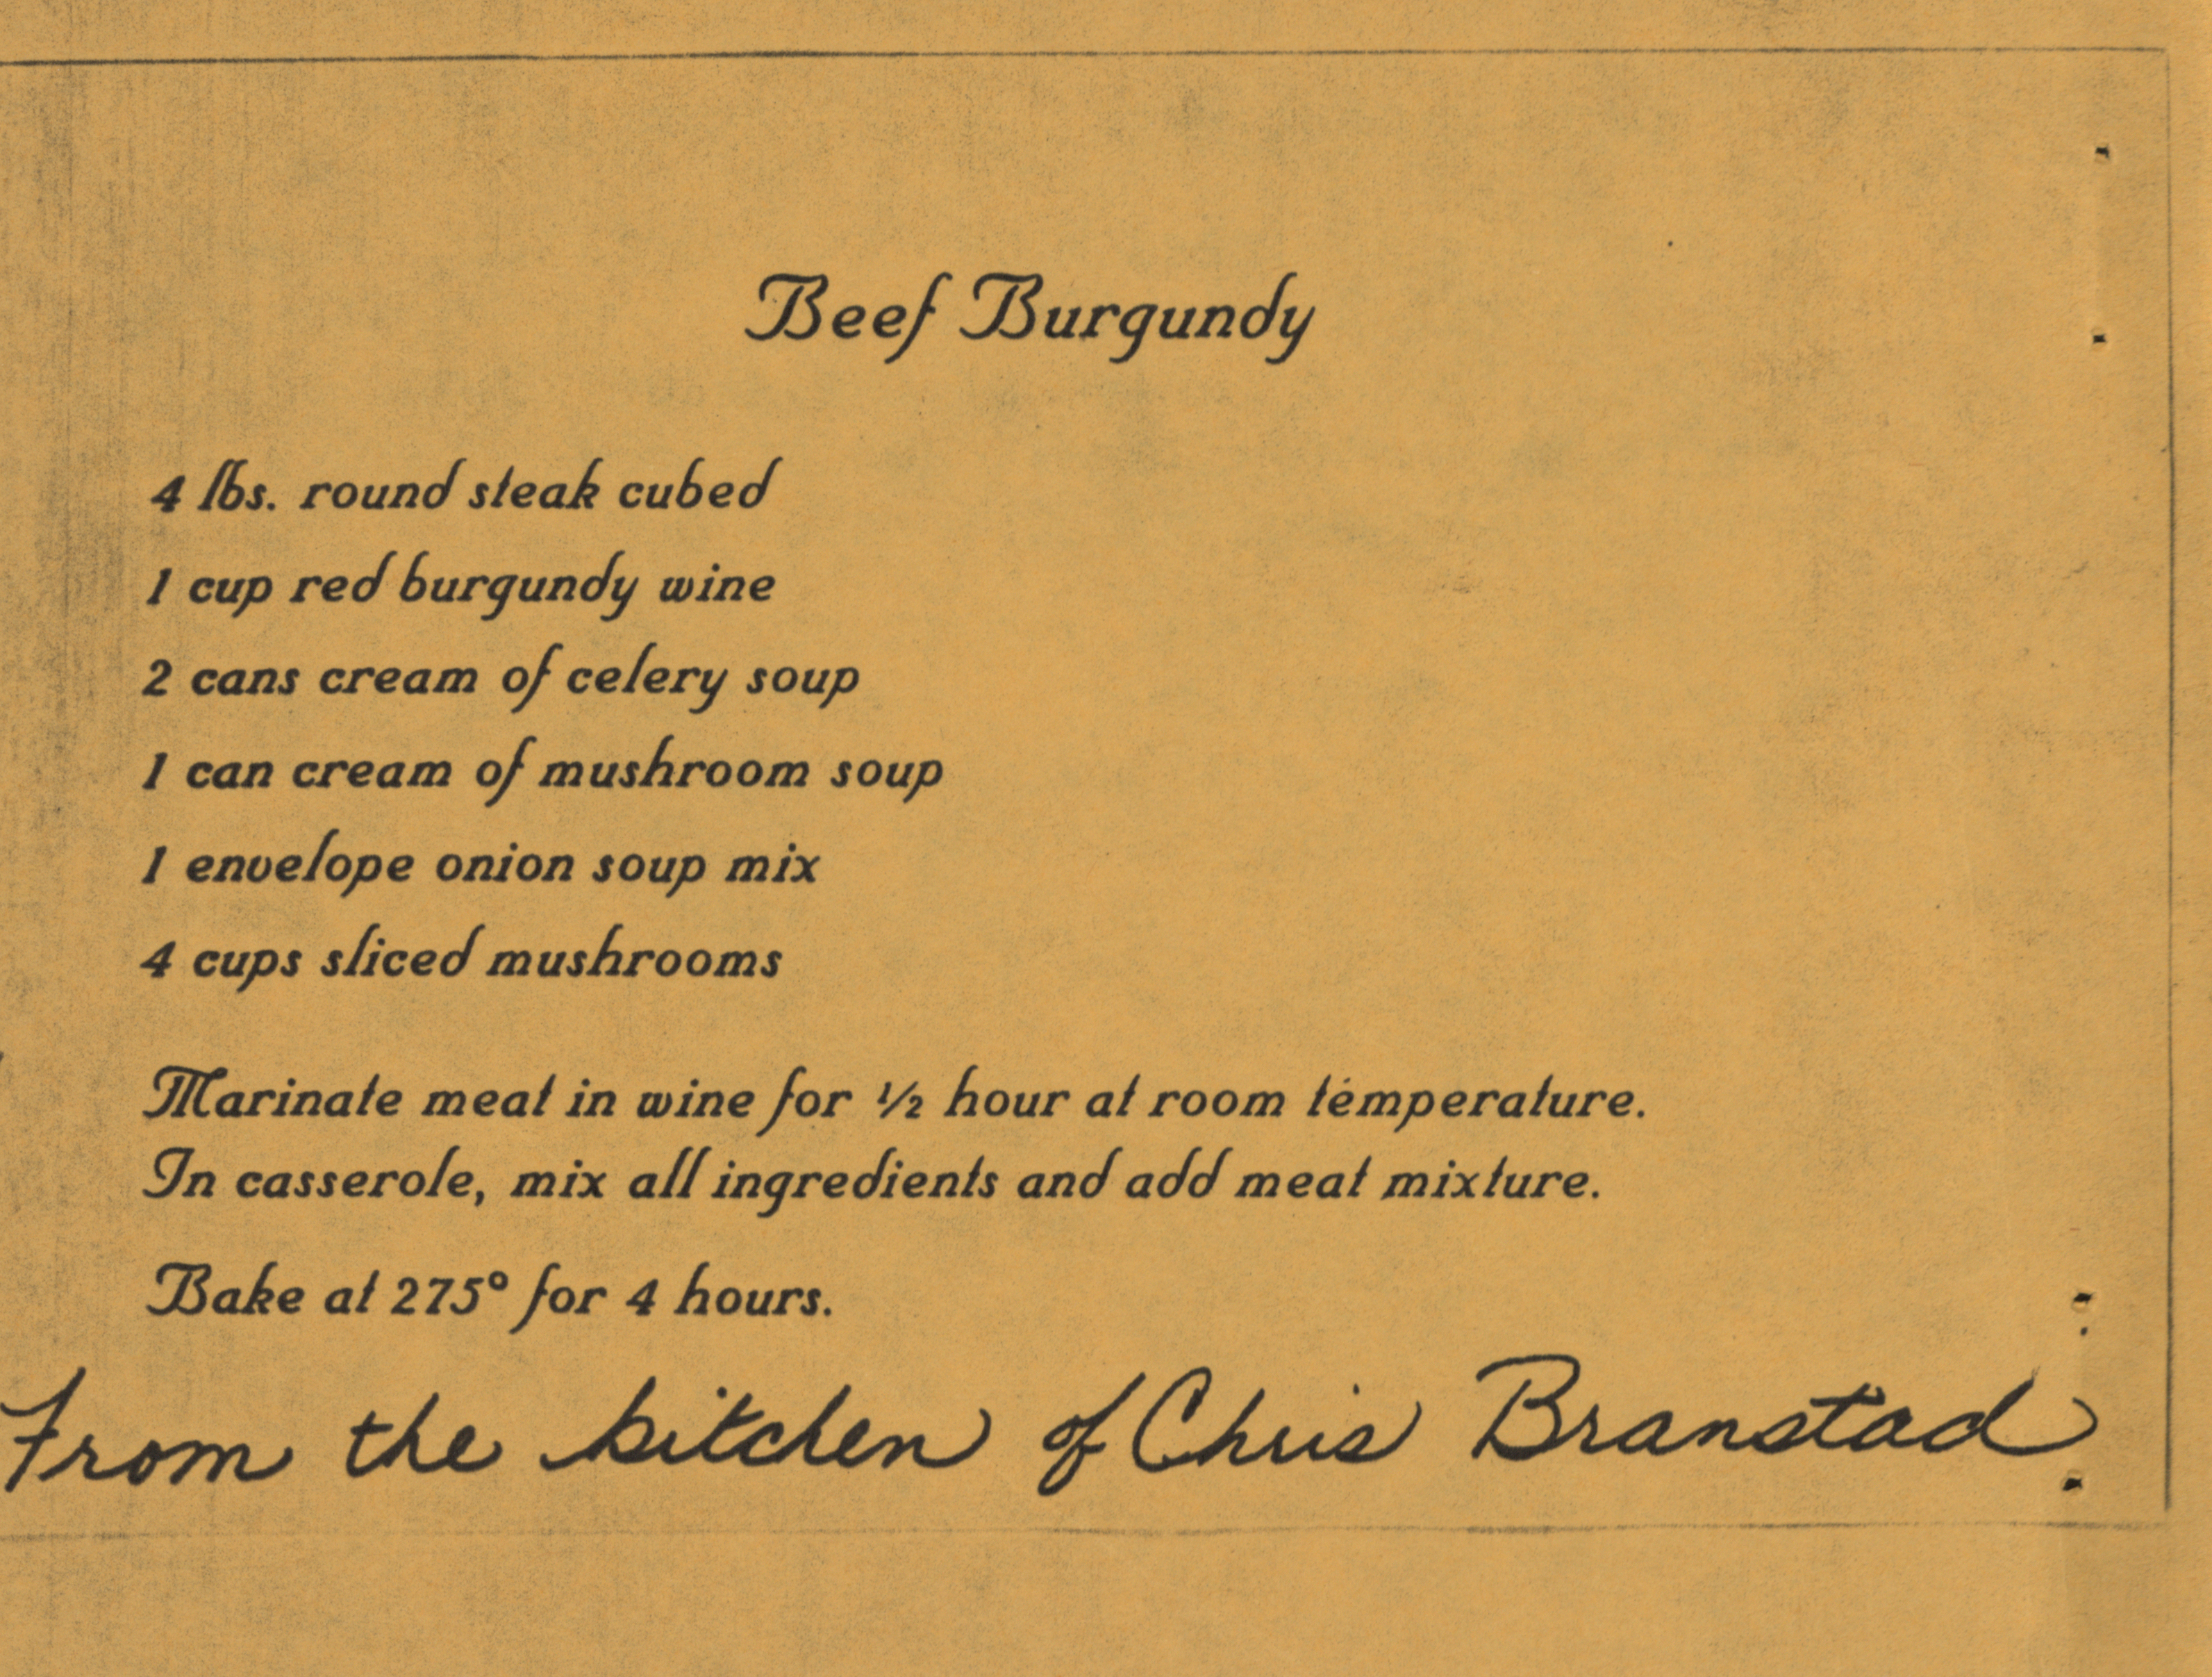 Beef Burgundy
4 lbs. round steak cubed
1 cup red burgundy wine
2 cans cream of celery soup
1 can cream of mushroom soup
1 envelope onion soup mix
4 cups sliced mushrooms
Marinate meat in wine for ½ hour at room temperature.
In casserole, mix all ingredients and add meat mixture.
Bake at 275° for 4 hours.
From the kitchen of Chris Branstad